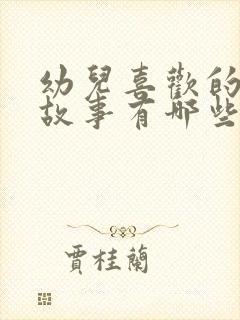 幼兒喜歡的
故事有哪些
賈桂蘭